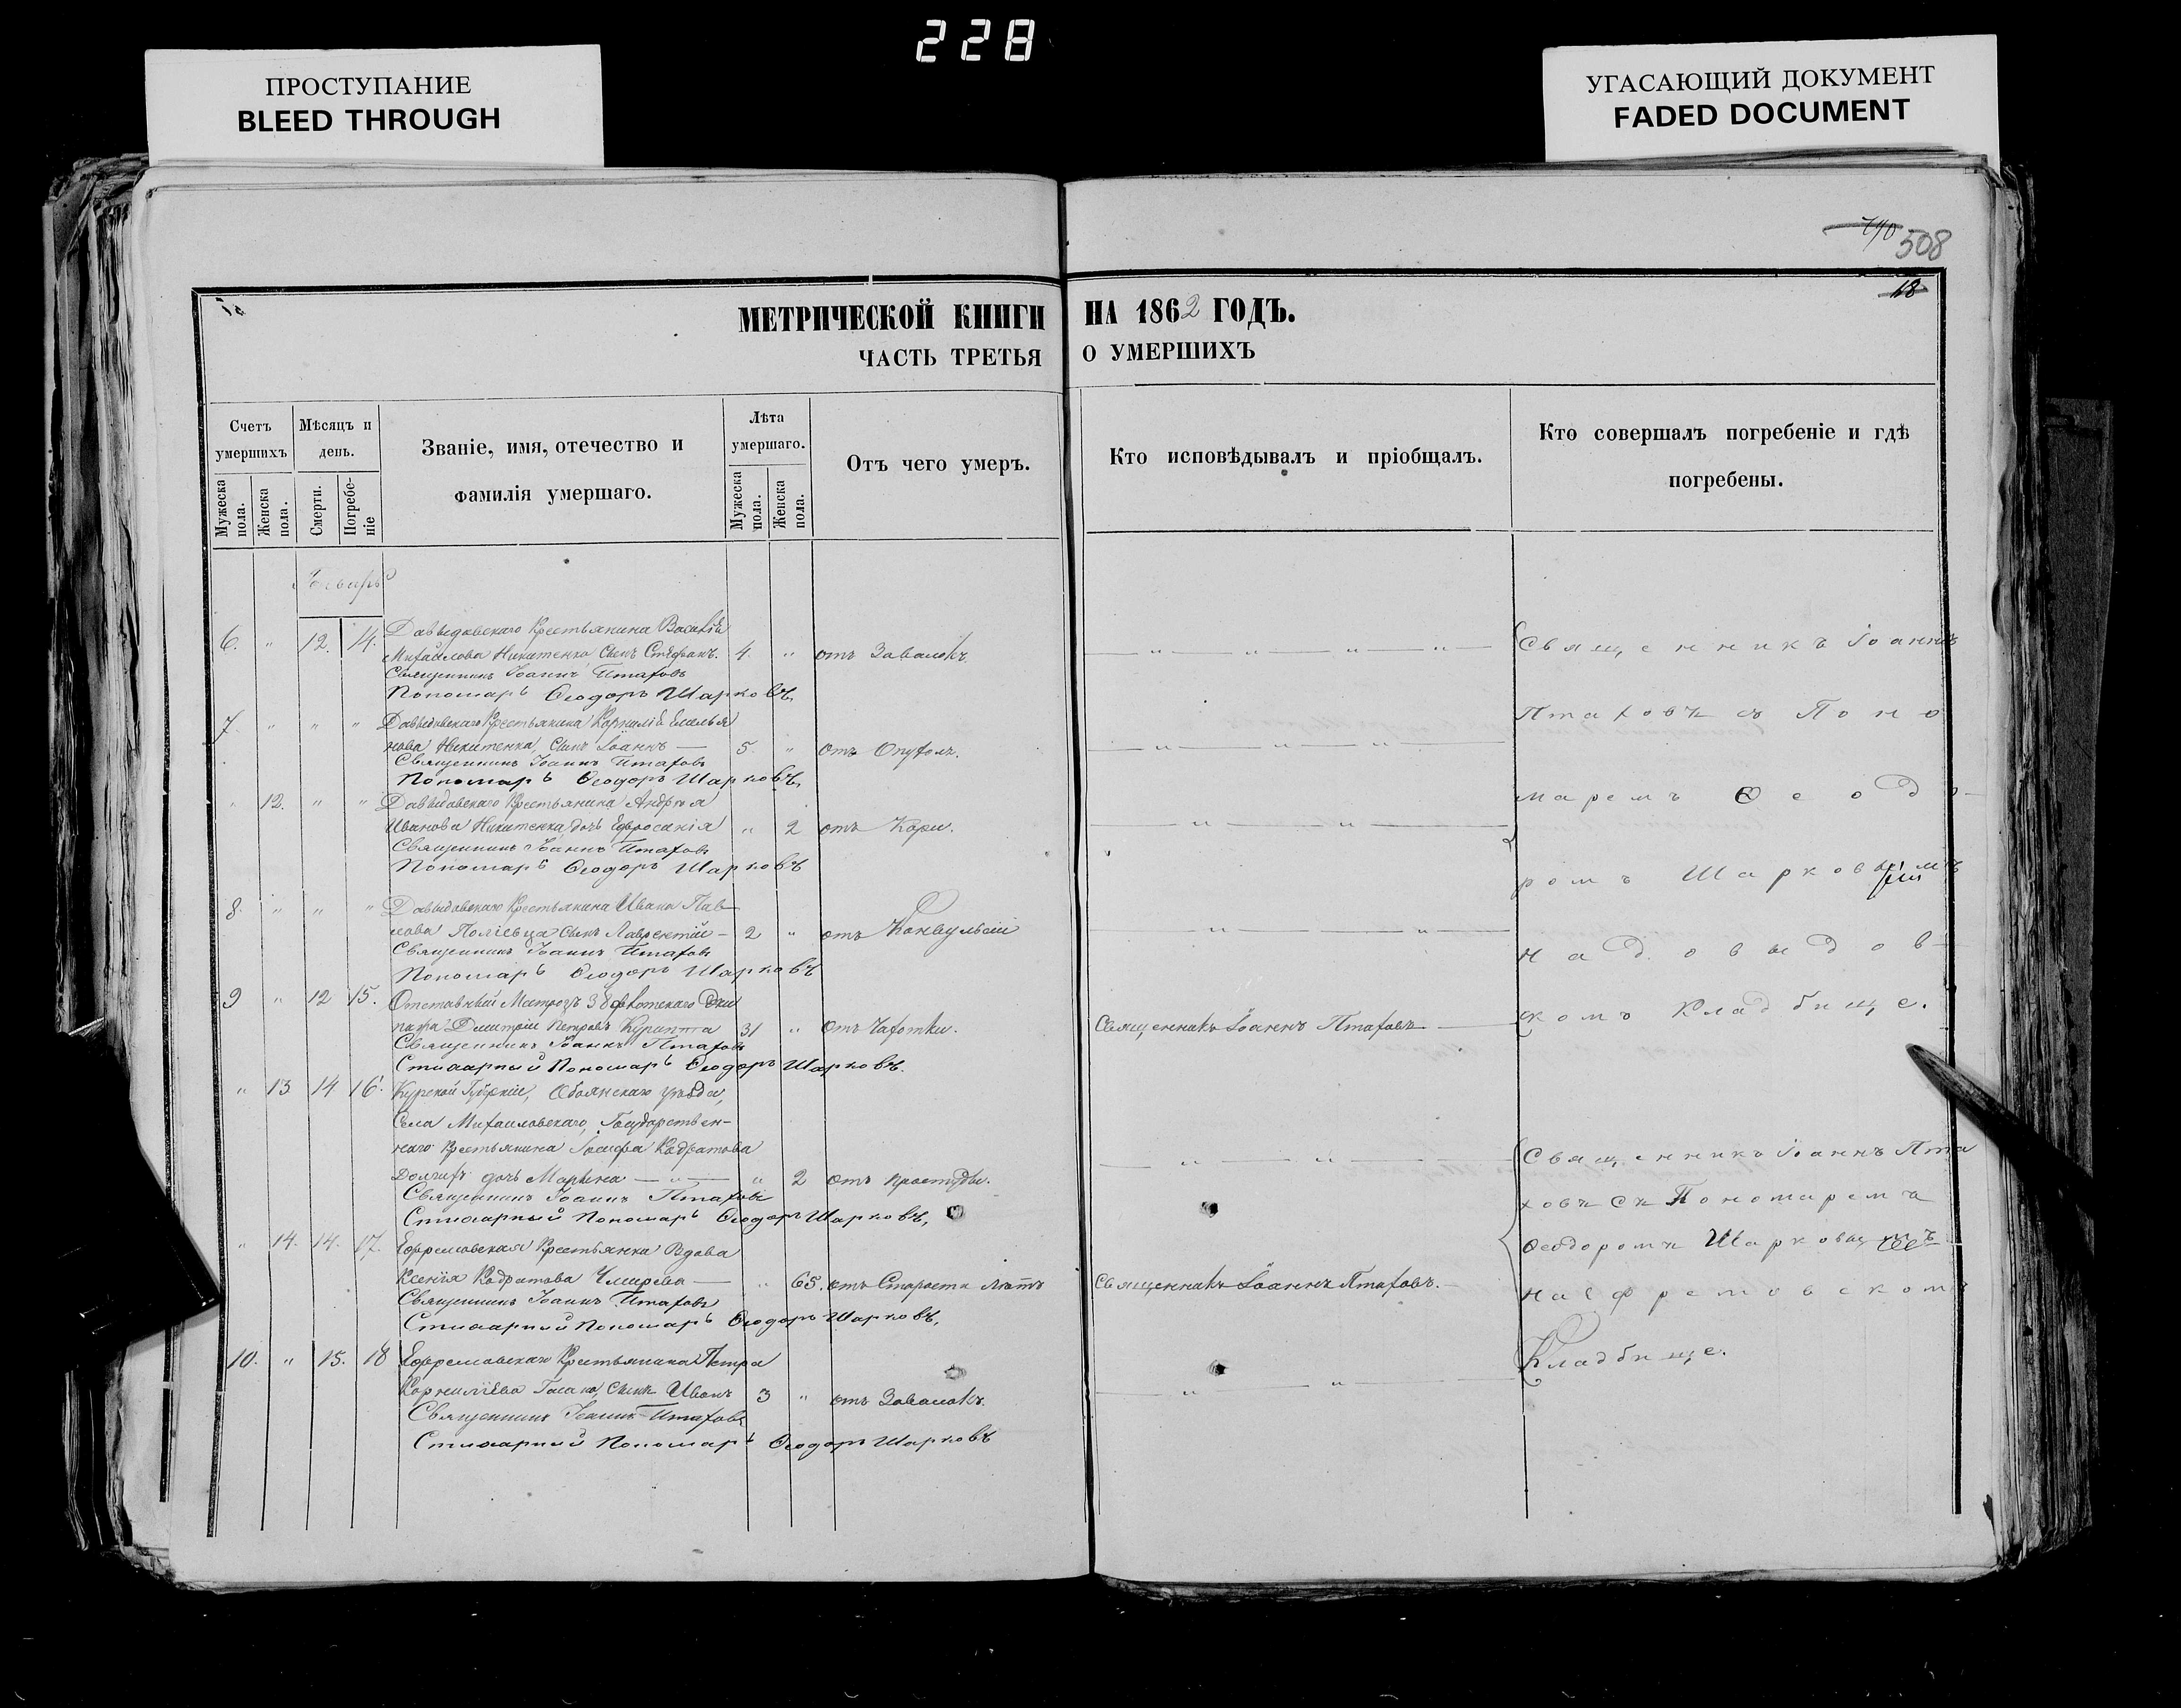 228
ПРОСТУПАНИЕ
BLEED THROUGH
УГАСАЮЩИЙ ДОКУМЕНТ
FADED DOCUMENT
740
508
18
МЕТРИЧЕСКОЙ КНИГИ НА 1862 ГОДЪ.
ЧАСТЬ ТРЕТЬЯ О УМЕРШИХЪ
Счетъ умершихъ
Мужеска пола.
Женска пола.
Мѣсяцъ и день.
Смерти.
Погребеніе
Званіе, имя, отечество и фамилія умершаго.
Лѣта умершаго.
Мужеска пола.
Женска пола.
Отъ чего умеръ.
Кто исповѣдывалъ и пріобщалъ.
Кто совершалъ погребеніе и гдѣ погребены.
Генварь
6. " 12. 14. Давыдовскаго Крестьянина Василія
Михайлова Никитенка сынъ Стефанъ. 4. " отъ Завалокъ.
Священникъ Іоаннъ Птаховъ
Пономарь Ѳеодоръ Шарковъ.
7. " " " Давыдовскаго Крестьянина Корнилія Емелья
нова Никитенка, сынъ Іоаннъ — 5. " отъ Опухол.
Священникъ Іоаннъ Птаховъ
Пономарь Ѳеодоръ Шарковъ.
" 12. " " Давыдовскаго Крестьянина Андрея
Иванова Никитенка дочь Ефросинія " 2 отъ Кори.
Священникъ Іоаннъ Птаховъ
Пономарь Ѳеодоръ Шарковъ
8. " " " Давыдовскаго Крестьянина Ивана Пав
лова сынъ Лаврентій — 2 " отъ Конвульсіи
Священникъ Іоаннъ Птаховъ
Пономарь Ѳеодоръ Шарковъ
9 " 12 15. Отставный Матрозъ 38 флотскаго Эки
пажа Дмитрій Петровъ 31 " Отъ Чахотки. Священникъ Іоаннъ Птаховъ
Священникъ Іоаннъ Птаховъ
Стихарный Пономарь Ѳеодоръ Шарковъ.
" 13 14 16. Курской Губерніи, Обоянскаго уѣзда,
Села Михайловскаго, Государствен-
наго Крестьянина Іосифа Кодратова
дочь Марина — " — " 2 отъ простуды.
Священникъ Іоаннъ Птаховъ
Стихарный Пономарь Ѳеодоръ Шарковъ,
" 14. 14. 17. Ефремовская Крестьянка Вдова
Ксенія Кодратова — " 65. отъ Старости лѣтъ Священникъ Іоаннъ Птаховъ.
Священникъ Іоаннъ Птаховъ
Стихарный Пономарь Ѳеодоръ Шарковъ,
10. " 15. 18 Ефремовскаго Крестьянина Петра
Корниліева сынъ Иванъ 3 " отъ Завалокъ.
Священникъ Іоаннъ Птаховъ
Стихарный Пономарь Ѳеодоръ Шарковъ
Священникъ Іоаннъ
Птаховъ съ Поно
маремъ Ѳеодо-
ромъ Шарковымъ
на Довыдов-
скомъ Кладбище.
Священникъ Іоаннъ Пта
ховъ съ Пономаремъ
Ѳеодоромъ Шарковымъ
на Ефремовскомъ
Кладбище.